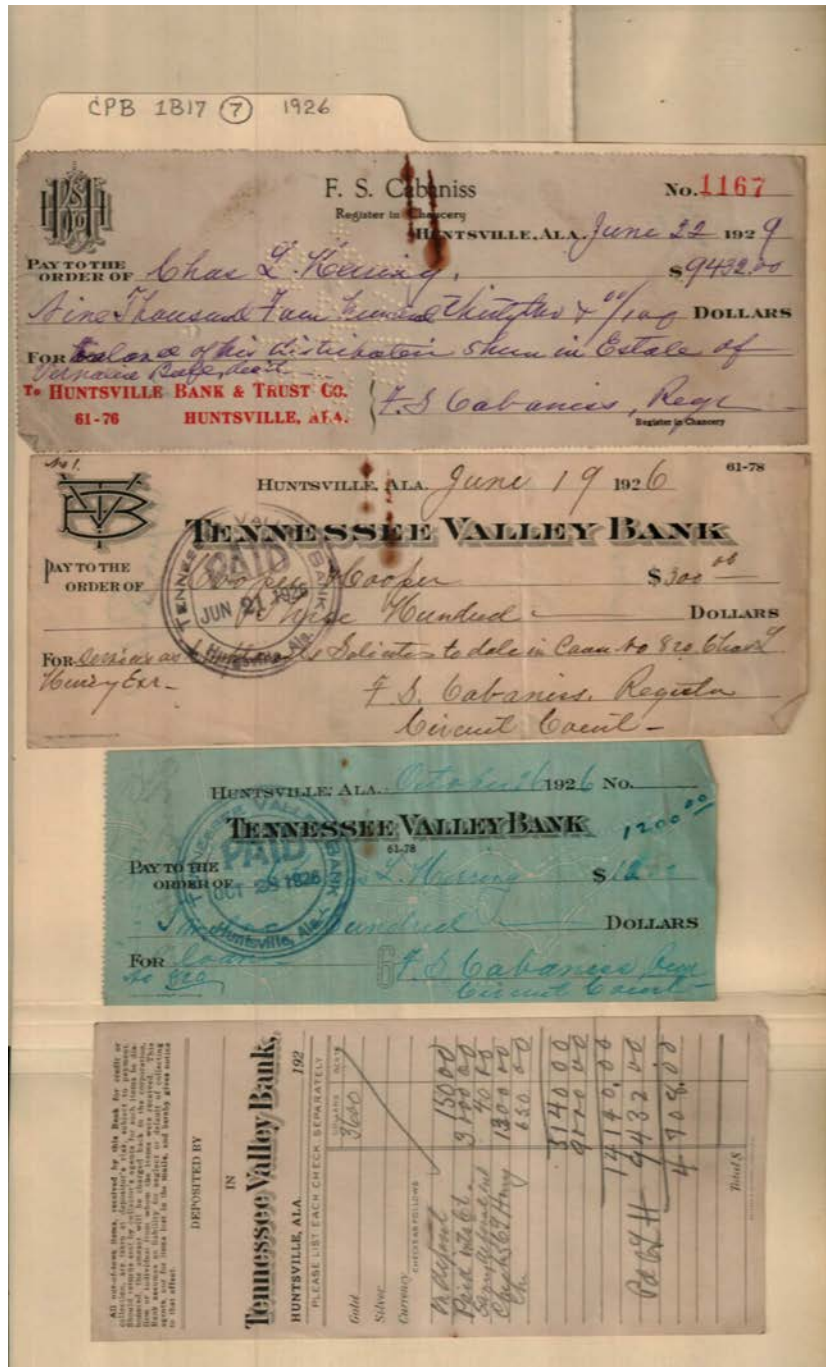 CPB 1B17 7 1926
F. S. Cabaniss
Register in Chancery
No. 1167
HUNTSVILLE, ALA. June 22 1929
PAY TO THE
ORDER OF Chas L. Herring, $9432.00
Nine Thousand Four Hundred Thirty two & 00/100 DOLLARS
FOR Balance of his distributive share in Estate of
To HUNTSVILLE BANK & TRUST CO.
61-76 HUNTSVILLE, ALA.
F. S Cabaniss, Regr
Register in Chancery
No 1.
61-78
HUNTSVILLE, ALA. June 19 1926
TVB
TENNESSEE VALLEY BANK
PAY TO THE
ORDER OF Cooper & Cooper $300 00
Three Hundred DOLLARS
FOR Services as Solicitors to date in Cause No 820 Chas L
Exr
F. S. Cabaniss, Register
Circuit Court
TENNESSEE VALLEY BANK
PAID
JUN 21 1926
Huntsville, Ala.
HUNTSVILLE, ALA. October 26 1926 No.
TENNESSEE VALLEY BANK
61-78
1200 00
PAY TO THE
ORDER OF L. Herring $ 12
Hundred DOLLARS
FOR loan
No 820
F. S Cabaniss
Circuit Court
TENNESSEE VALLEY BANK
PAID
OCT 1926
Huntsville, Ala.
All out-of-town items, received by this Bank for credit or
collection, are taken at depositor's risk, subject to payment.
Should returns sent by collection agents for such items be dis-
honored, the amount will be charged back to the corporation,
firm or individual from whom the items were received. This
Bank assumes no liability for neglect or default of collecting
agents, nor for items lost in the mails, and hereby gives notice
to that effect.
DEPOSITED BY
IN
Tennessee Valley Bank,
HUNTSVILLE, ALA. 192
PLEASE LIST EACH CHECK SEPARATELY
DOLLARS CENTS
Gold 3600
Silver
Currency
CHECKS AS FOLLOWS
150 00
Paid into Ct. 3000 00
40 00
1300 00
650 00
5140 00
9000 00
14140.00
Pd C L H 9432 00
4708.00
Total $